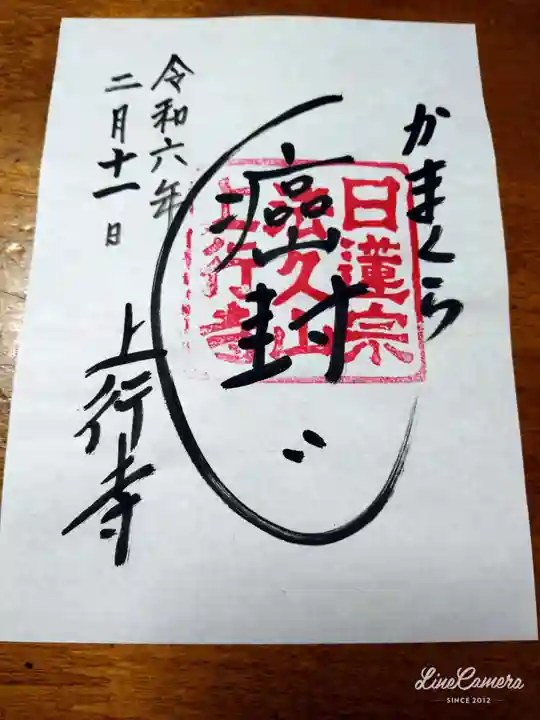 かまくら
癌封じ
日蓮宗
法久山
上行寺
令和六年
二月十一日
上行寺
LINE Camera
SINCE 2012